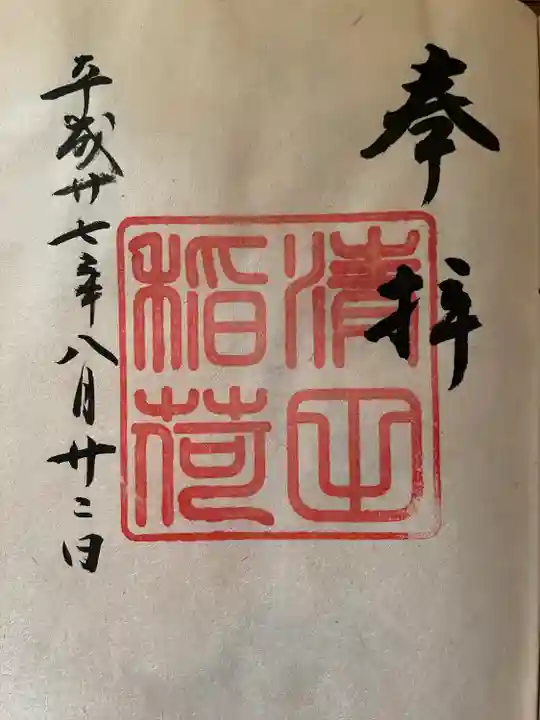 奉拝
清
稲荷
平成廿七年八月廿二日